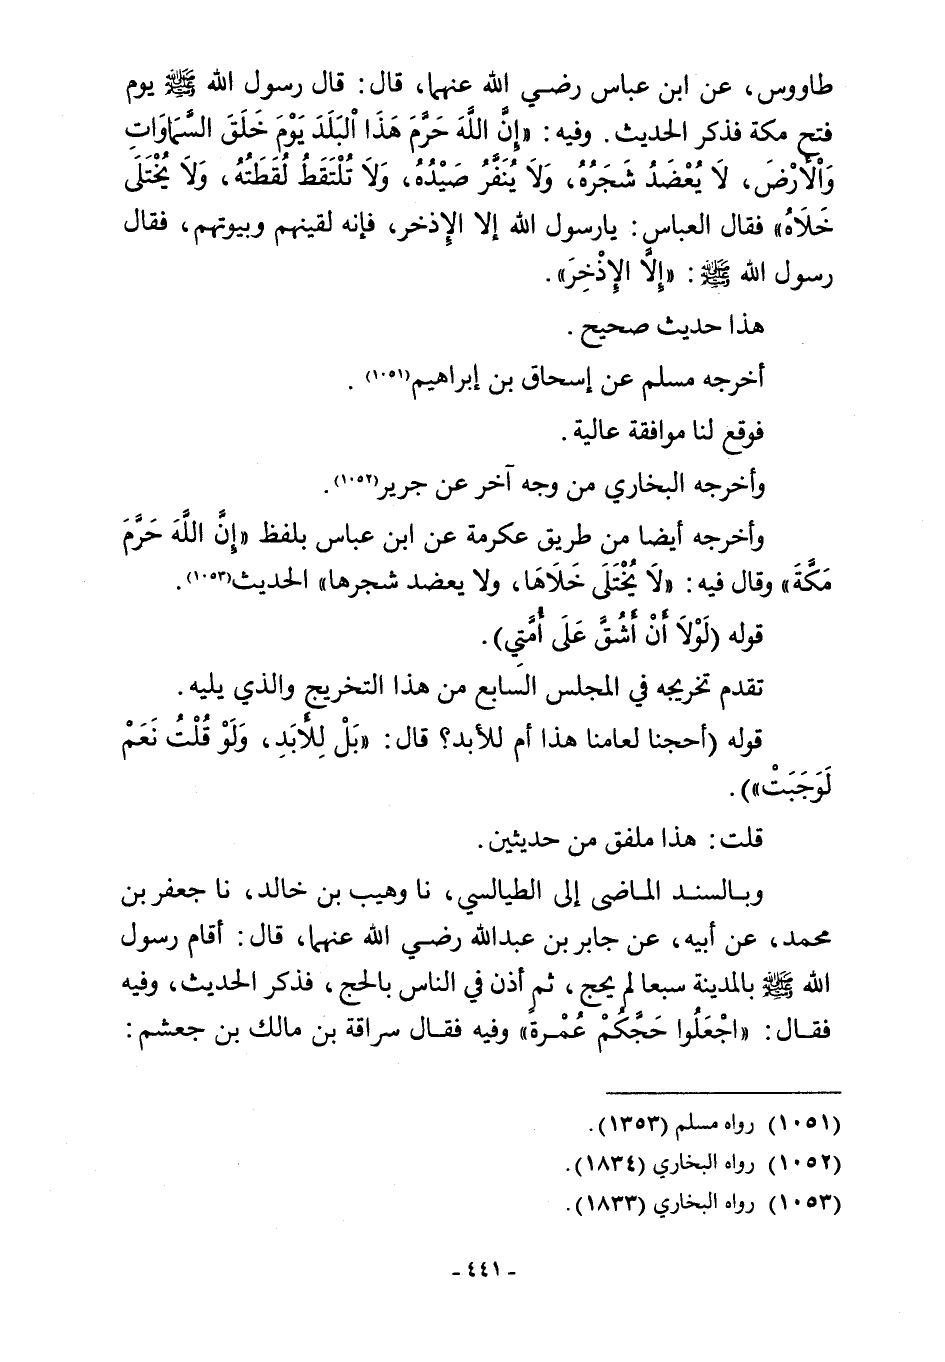 طاووس، عن ابن عباس رضي الله عنهما، قال: قال رسول الله ﷺ يوم
فتح مكة فذكر الحديث. وفيه: «إِنَّ اللَّهَ حَرَّمَ هَذَا الْبَلَدَ يَوْمَ خَلَقَ السَّمَاوَاتِ
وَالْأَرْضَ، لَا يُعْضَدُ شَجَرُهُ، وَلاَ يُنَفَّرُ صَيْدُهُ، وَلاَ تُلْتَقَطُ لُقَطَتُهُ، وَلاَ يُخْتَلَى
خَلَاهُ» فقال العباس: يارسول الله إلا الإذخر، فإنه لقينهم وبيوتهم، فقال
رسول الله ﷺ: «إِلَّا الإِذْخِرَ».
هذا حديث صحيح.
أخرجه مسلم عن إسحاق بن إبراهيم(١٠٥١).
فوقع لنا موافقة عالية.
وأخرجه البخاري من وجه آخر عن جرير(١٠٥٢).
وأخرجه أيضا من طريق عكرمة عن ابن عباس بلفظ «إِنَّ اللَّهَ حَرَّمَ
مَكَّةَ» وقال فيه: «لَا يُخْتَلَى خَلَاهَا، ولا يعضد شجرها» الحديث(١٠٥٣).
قوله (لَوْلاَ أَنْ أَشُقَّ عَلَى أُمَّتِي).
تقدم تخريجه في المجلس السابع من هذا التخريج والذي يليه.
قوله (أحجنا لعامنا هذا أم للأبد؟ قال: «بَلْ لِلْأَبَدِ، وَلَوْ قُلْتُ نَعَمْ
لَوَجَبَتْ»).
قلت: هذا ملفق من حديثين.
وبالسند الماضى إلى الطيالسي، نا وهيب بن خالد، نا جعفر بن
محمد، عن أبيه، عن جابر بن عبدالله رضي الله عنهما، قال: أقام رسول
الله ﷺ بالمدينة سبعا لم يحج، ثم أذن في الناس بالحج، فذكر الحديث، وفيه
فقال: «اجْعَلُوا حَجَّكُمْ عُمْرةً» وفيه فقال سراقة بن مالك بن جعشم:
(١٠٥١) رواه مسلم (١٣٥٣).
(١٠٥٢) رواه البخاري (١٨٣٤).
(١٠٥٣) رواه البخاري (١٨٣٣).
- ٤٤١ -